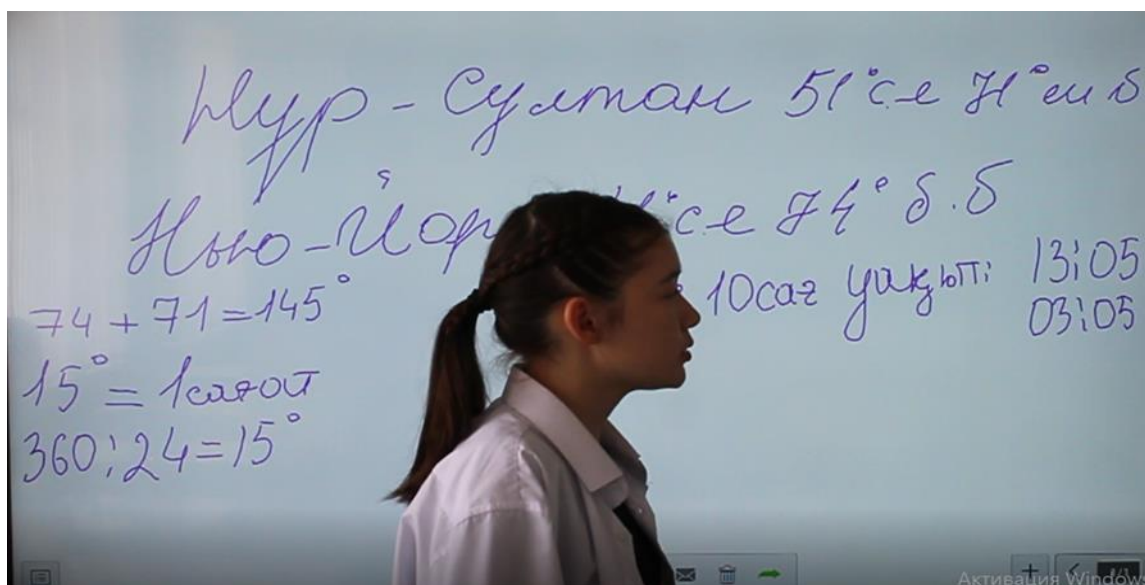 Нур-Султан 51° с.е 71° ш б
Нью-Йор с.е 74° б.б
74 + 71 = 145°
15° = 1 сағат
360 : 24 = 15°
10 сағ уақыт: 13:05
03:05
Активация Window